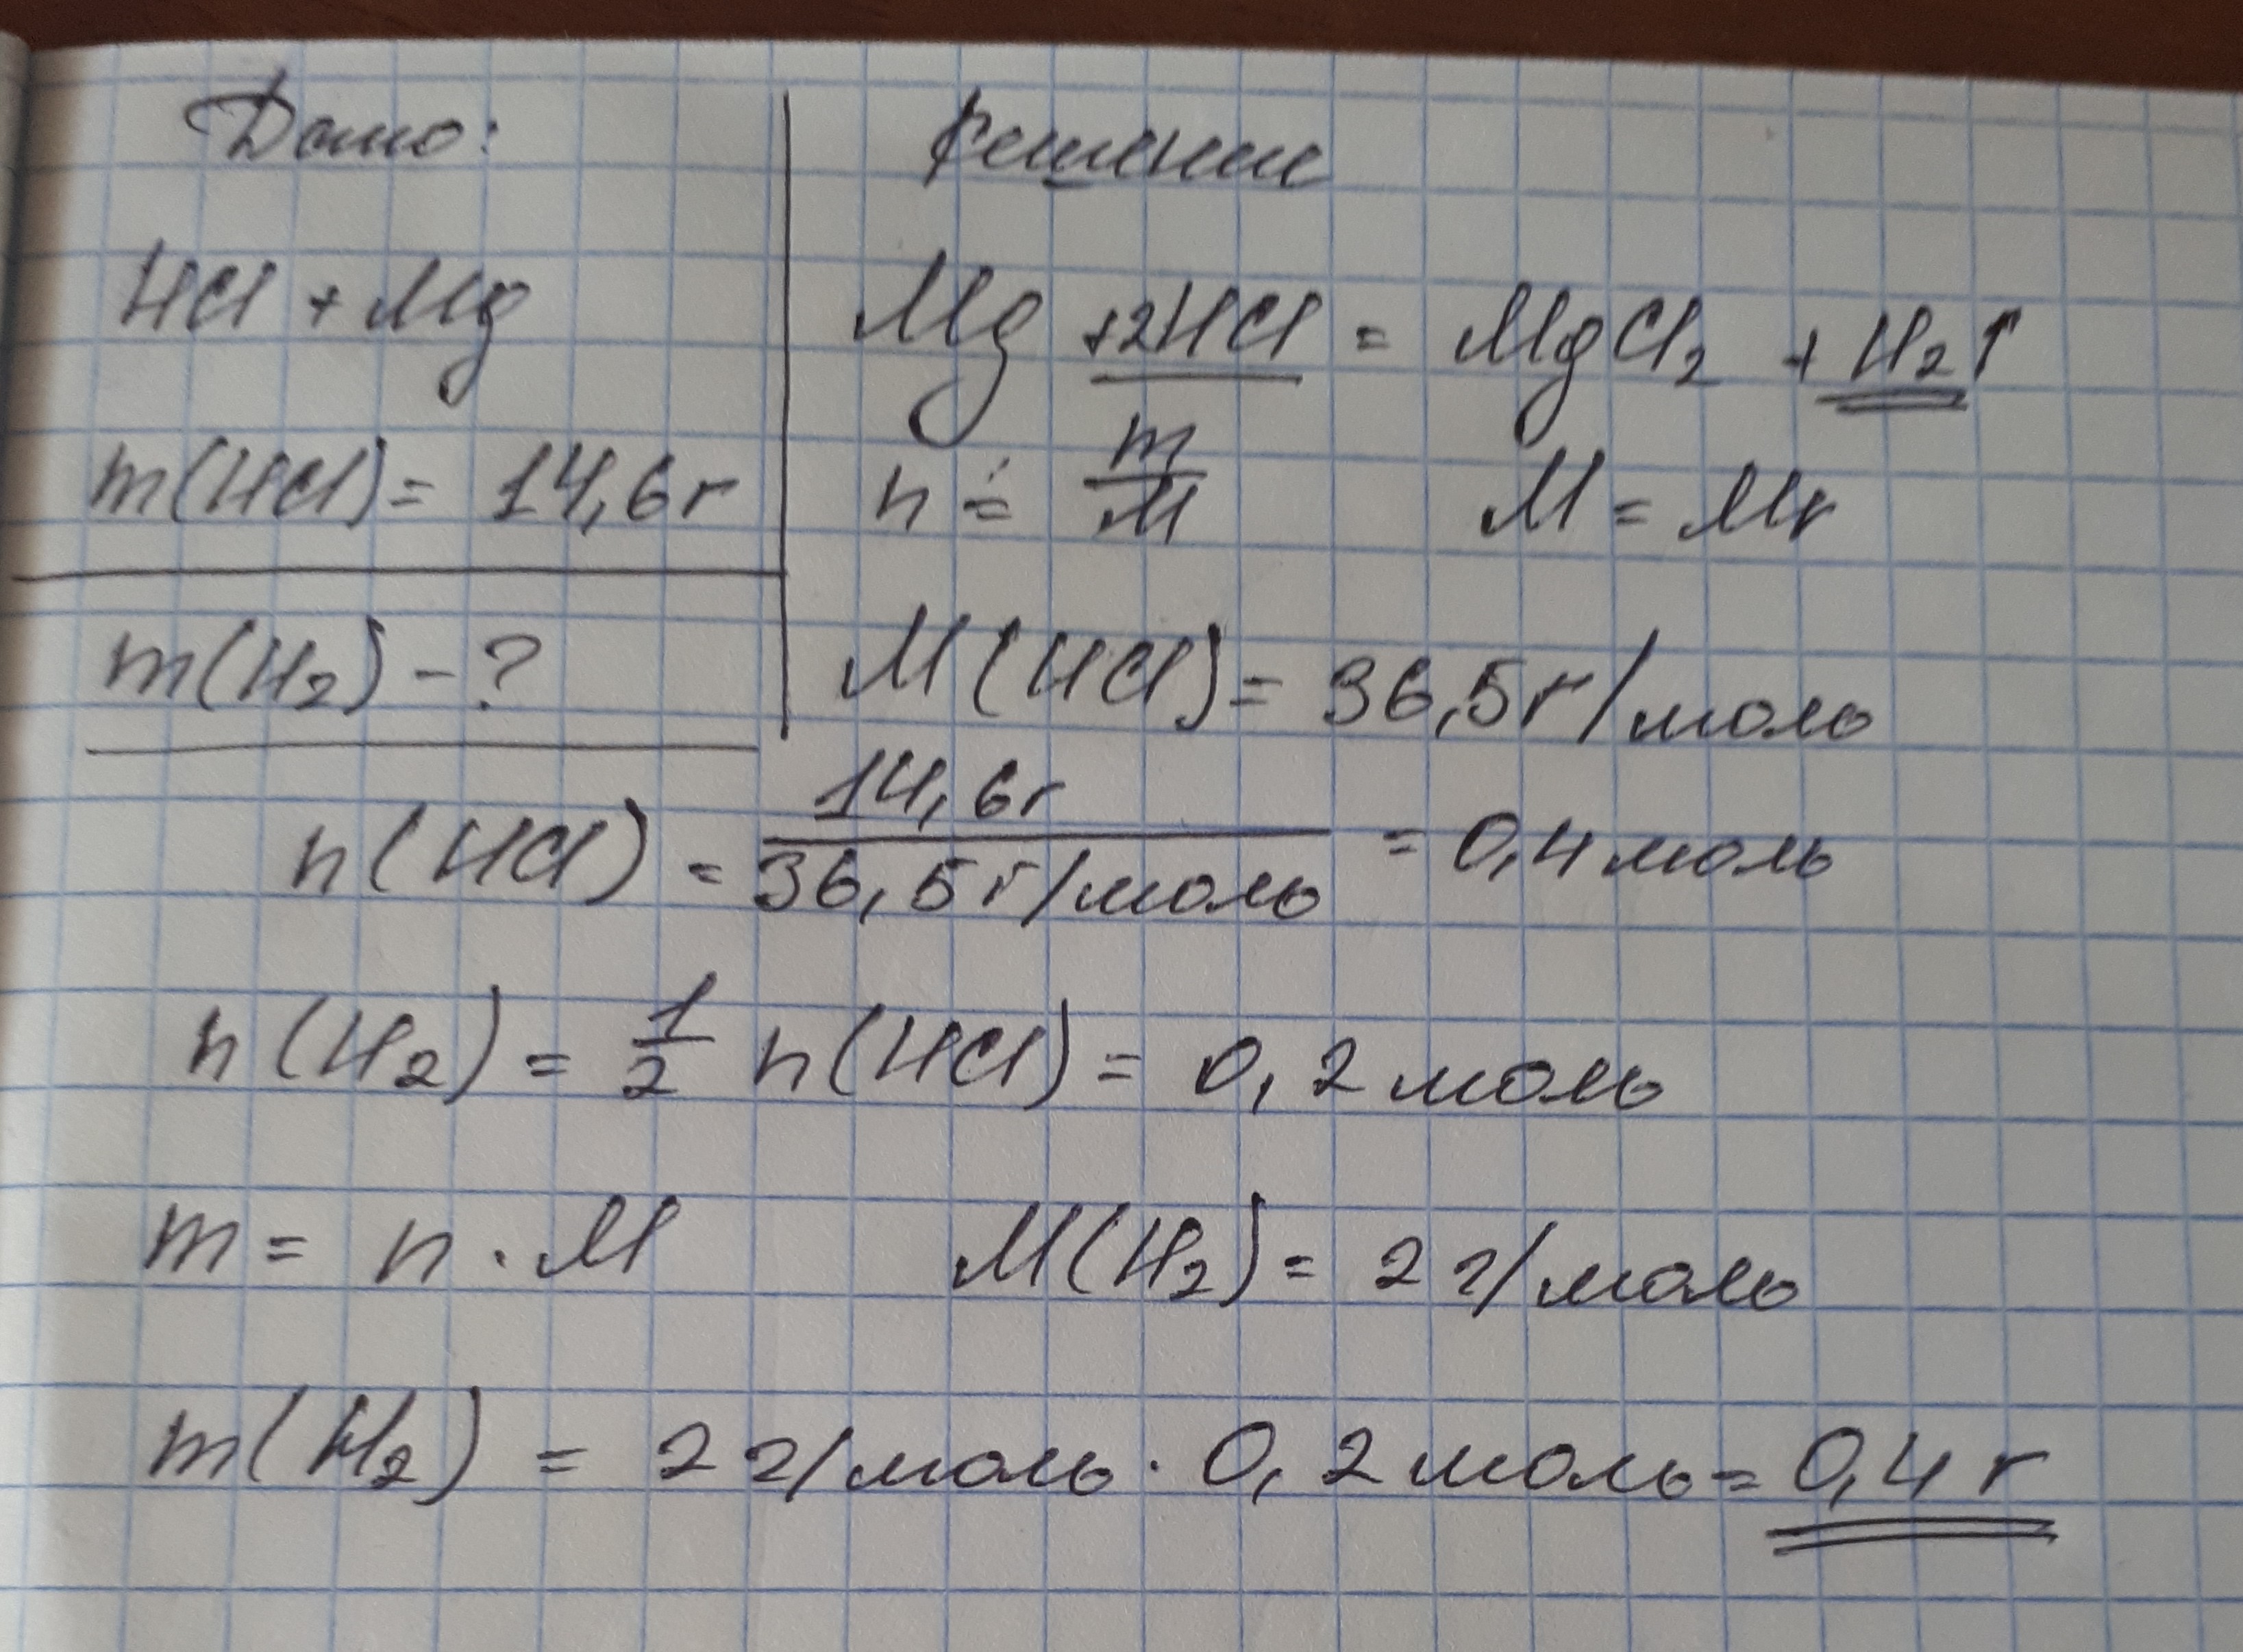 Дано:
HCl + Mg
m(HCl) = 14,6 г
m(H₂) - ?
Решение
Mg + 2HCl = MgCl₂ + H₂↑
n = m/M M = Mr
M(HCl) = 36,5 г/моль
n(HCl) = 14,6 г / 36,5 г/моль = 0,4 моль
n(H₂) = 1/2 n(HCl) = 0,2 моль
m = n · M M(H₂) = 2 г/моль
m(H₂) = 2 г/моль · 0,2 моль = 0,4 г